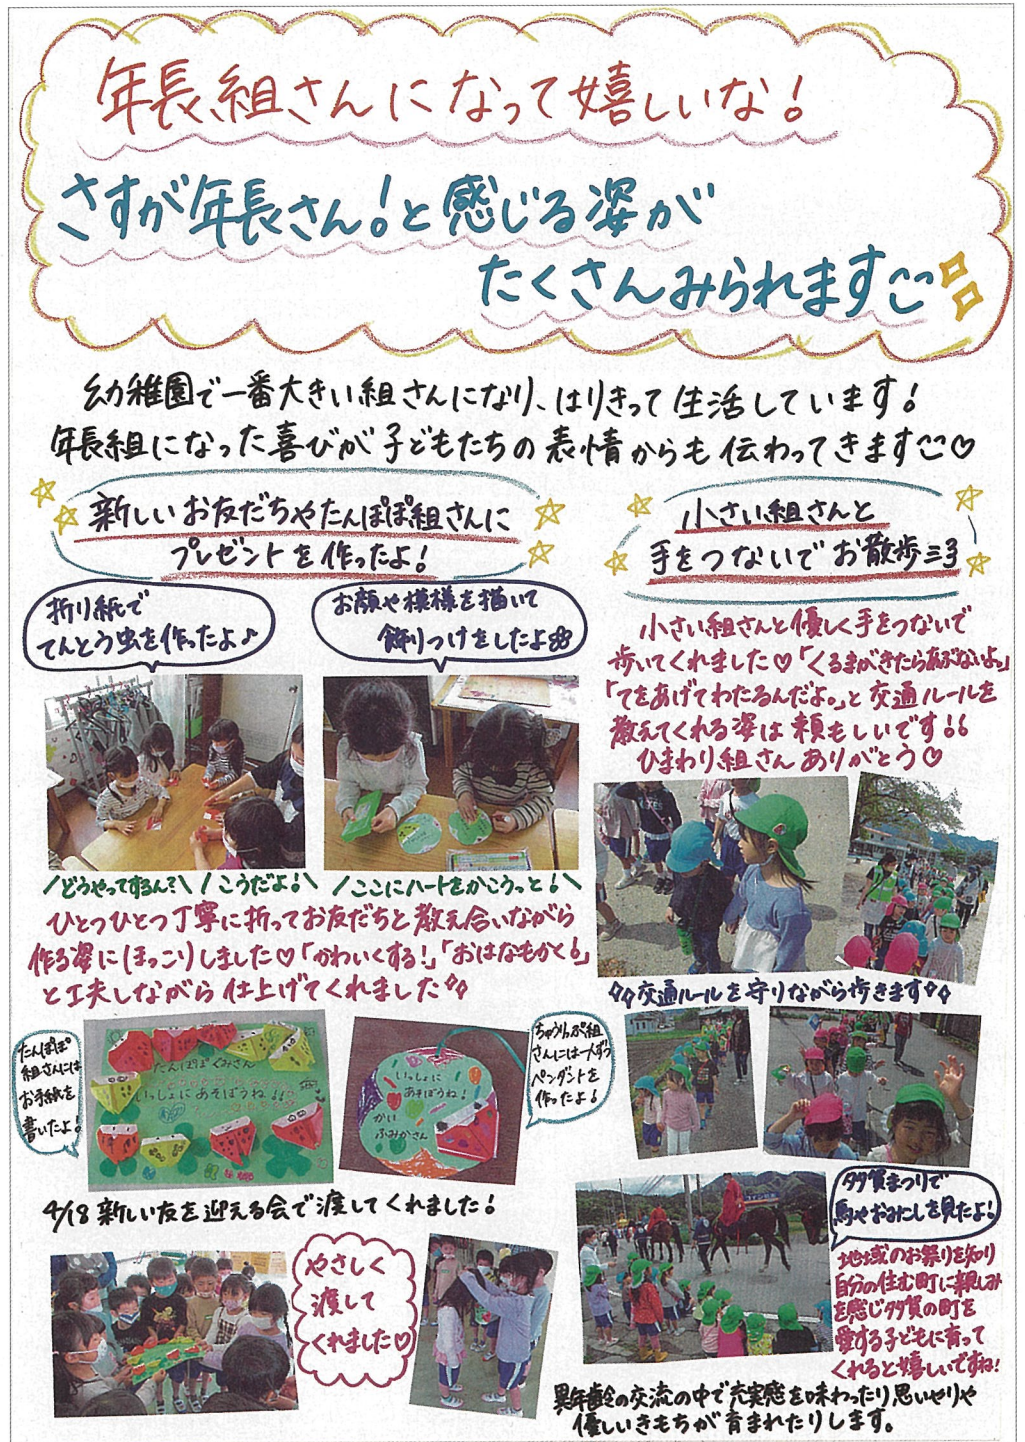 年長組さんになって嬉しいな!
さすが年長さん!と感じる姿が
たくさんみられます
幼稚園で一番大きい組さんになり、はりきって生活しています!
年長組になった喜びが子どもたちの表情からも伝わってきます♡
新しいお友だちやたんぽぽ組さんに
プレゼントを作ったよ!
折り紙で
てんとう虫を作ったよ♪
お顔や模様を描いて
飾りつけをしたよ
\どうやってするん?/
\こうだよ!/
\ここにハートをかこうっと!/
ひとつひとつ丁寧に折ってお友だちと教え合いながら
作る姿にほっこりしました♡「かわいくする!」「おはなもかく!」
と工夫しながら仕上げてくれました
たんぽぽ
組さんには
お手紙を
書いたよ!
たんぽぽぐみさん
いっしょにあそぼうね!!
いっしょに
あそぼうね!
かい
ふみかさん
ちゅうりっぷ組
さんには一人ずつ
ペンダントを
作ったよ!
4/18 新しい友を迎える会で渡してくれました!
やさしく
渡して
くれました♡
小さい組さんと
手をつないでお散歩
小さい組さんと優しく手をつないで
歩いてくれました♡「くるまがきたらあぶないよっ」
「てをあげてわたるんだよ。」と交通ルールを
教えてくれる姿は頼もしいです!!
ひまわり組さんありがとう♡
交通ルールを守りながら歩きます
多賀まつりで
馬やおみこしを見たよ!
地域のお祭りを知り
自分の住む町に親しみ
を感じ多賀の町を
愛する子どもに育って
くれると嬉しいですね!
異年齢の交流の中で充実感を味わったり思いやりや
優しいきもちが育まれたりします。